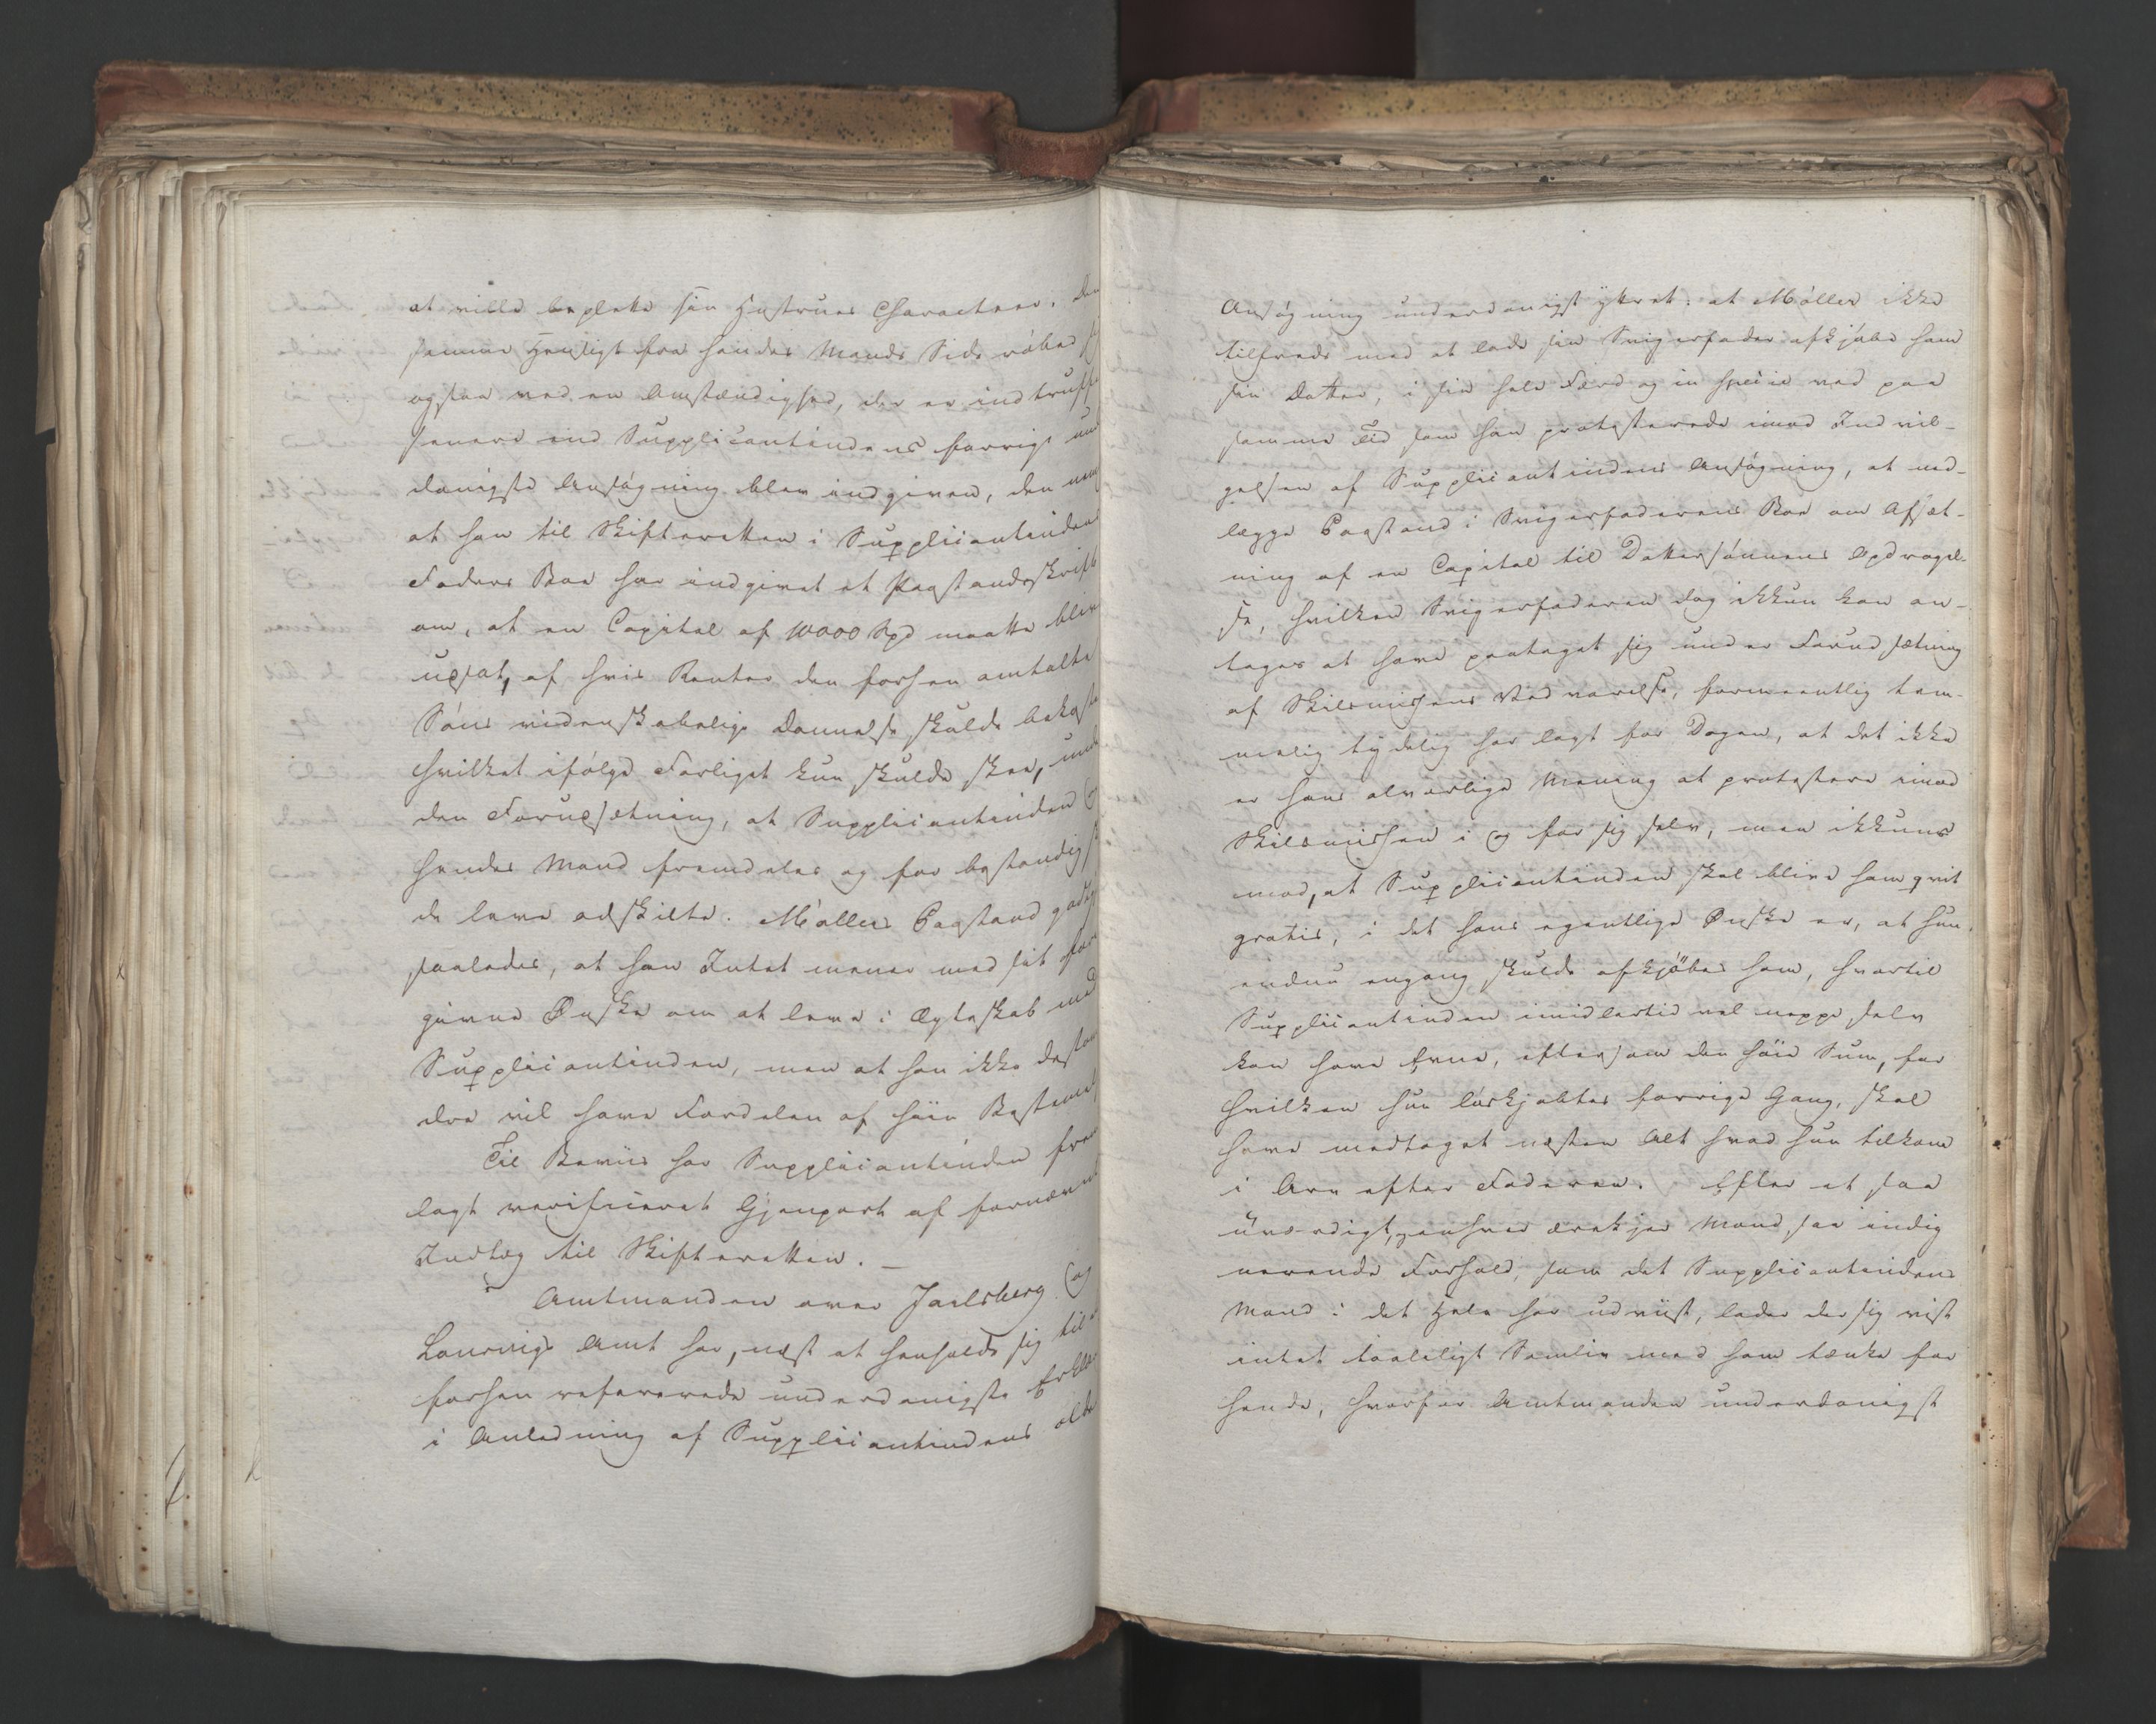 at ville beplette sin Hustrues Characteer. Den
samme Hensigt fra hendes Mands Side röber sig
ogsaa ved en Omstændighed, der er indtruffen
senere end Supplicantindens forrige under
danigste Ansøgning blev indgiven, den nemlig
at han til Skifteretten i Supplicantindens
Faders Boe har indgivet et Paastandsskrift
om, at en Capital af 10000 Spd maatte blive
udsat, af hvis Renter den forhen omtalte
Söns videnskabelige Dannelse skulde bekostes
hvilket ifölge Forliget kun skulde skee, under
den Forudsetning, at Supplicantinden og
hendes Mand fremdeles og for bestandig skul
de leve adskilte. Möllers Paastand godtgjör
saaledes, at han Intet mener med sit fore
givne Ønske om at leve i Ægteskab med
Supplicantinden, men at han ikke desto min
dre vil have Fordelen af hiin Bestemmelse
Til Beviis har Supplicantinden frem
lagt verificeret Gjenpart af fornævnte
Indlæg til Skifteretten. —
Amtmanden over Jarlsberg og
Laurvigs Amt har, næst at henholde sig til
forhen refererede underdanigste Erklæring
i Anledning af Supplicantindens ældre
Ansøgning underdanigst yttret: at Möller ikke
tilfreds med at lade sin Svigerfader afkjöbe ham
sin Datter, i sin hele Færd og in specie ved paa
samme Tid som han protesterede imod Indvil-
gelsen af Supplicantindens Ansøgning, at ned-
lægge Paastand i Svigerfaderens Boe om Afsæt-
ning af en Capital til Dattersönnens Opdragel-
se, hvilken Svigerfaderen dog ikkun kan an-
tages at have paataget sig under Forudsætning
af Skilsmissens Vedvarelse, formeentlig tem-
melig tydelig har lagt for Dagen, at det ikke
er hans alvorlige Mening at protestere imod
Skilsmissen i og for sig selv, men ikkuns
mod, at Supplicantinden skal blive ham qvit
gratis, i det hans egentlige Ønske er, at hun
endnu engang skulde afkjöbes ham, hvortil
Supplicantinden imidlertid vel neppe selv
kan have Evne, eftersom den höie Sum, for
hvilken hun löskjøbtes forrige Gang, skal
have medtaget næsten Alt hvad hun tilkom
i Arv efter Faderen. Efter et saa
uværdigt, enhver ærekjær Mand saa indig
nerende Forhold, som det Supplicantindens
Mand i det Hele har udviist, lader der sig vist
intet taaleligt Samliv med ham tænke for
hende, hvorfor Amtmanden underdanigst